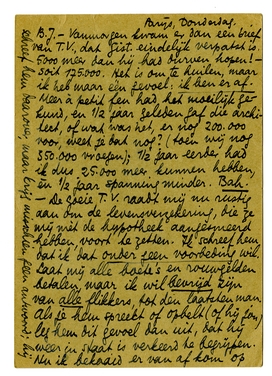 Parijs, Donderdag.
B.J. – Vanmorgen kwam er dan een brief
van T.V., dat gist. eindelijk verpatst is.
5000 meer dan hij had durven hopen! –
Soit 175.000. Het is om te huilen, maar
ik heb maar één gevoel: ik ben er af –
Meer à petit feu had het moeilijk ge-
kund, en 1/2 jaar geleden gaf die archi-
tect, of wat was het, er nog 200.000
voor, weet je dat nog? (toen wij nog
350.000 vroegen); 1/2 jaar eerder had
ik dus 25.000 meer kunnen hebben,
en 1/2 jaar spanning minder. Bah.
– De goeie T.V. raadt mij nu rustig
aan om de levensverzekering, die ze
mij met de hypotheek aangesmeerd
hebben, voort te zetten. Ik schreef hem
dat ik dat onder geen voorwaarde wil.
Laat mij alle boete's en rouwgelden
betalen, maar ik wil bevrijd zijn
van alle flikkers, tot den laatsten man.
Als je hem spreekt of opbelt (of hij jou)
leg hem dit gevoel dan uit, dat hij
weer in staat is verkeerd te begrijpen.
Nu ik bekaaid er van af kom op
schreef hem daarover, maar krijg misschien geen antwoord; hij